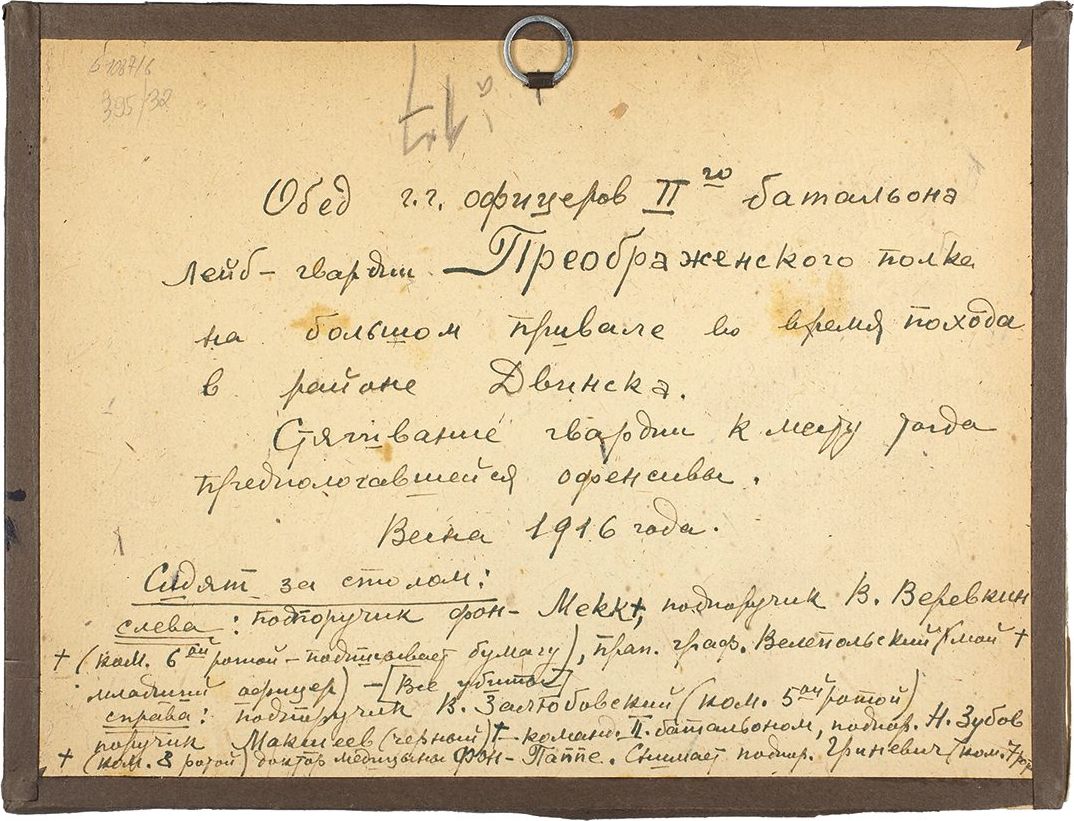 395/32
17
Обед г.г. офицеров II го батальона
Лейб-гвардии Преображенского полка
на большом привале во время похода
в районе Двинска.
Стягивание гвардии к месту тогда
предполагавшейся офенсивы.
Весна 1916 года.
Сидят за столом:
слева: подпоручик фон-Мекк+, подпоручик В. Веревкин
+ (ком. 6ой ротой - подписывает бумагу), прап. граф. Велепольский (мой +
младший офицер) - [Все убиты]
справа: подпоручик В. Залюбовский (ком. 5ой ротой)
поручик Макшеев (черный)+ - команд. II. батальоном, подпор. Н. Зубов
+ (ком. 8 ротой) доктор медицины Фон-Паппе. Снимает подпор. Гриневич (ком. 7 рот